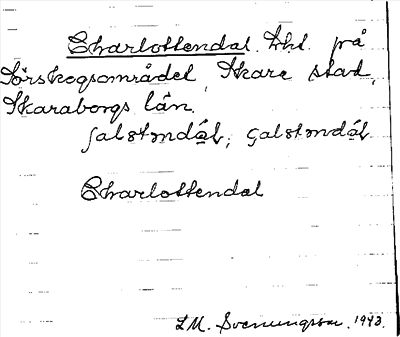 Charlottendal. Lht. på
Sörskogsområdet, Skara stad,
Skaraborgs län.
ʃalstɔndál; çalstɔndál.
Charlottendal
L M. Svenungsson. 1943.